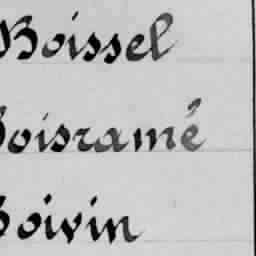 Boissel
Boisramé
Boivin